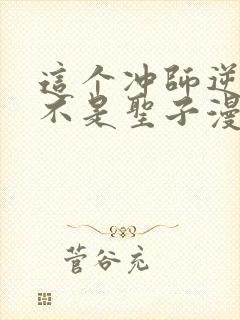 這个冲師逆
不是聖子漫
菅谷充